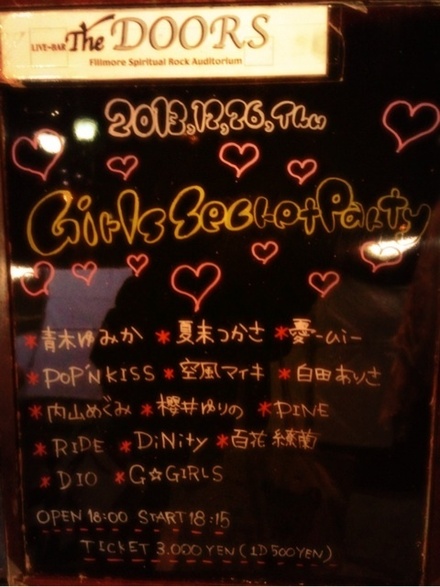 LIVE-BAR The DOORS
Fillmore Spiritual Rock Auditorium
2013,12,26,Thu
Girls Secret Party
*青木ゆみか *夏末つかさ *憂-ui-
*POP'N KISS *空風マイキ *白田ありさ
*内山めぐみ *櫻井ゆりの *DINE
*RiDE *DiNity *百花繚蘭
*DIO *G☆GIRLS
OPEN 18:00 START 18:15
TICKET 3.000YEN(1D 500YEN)